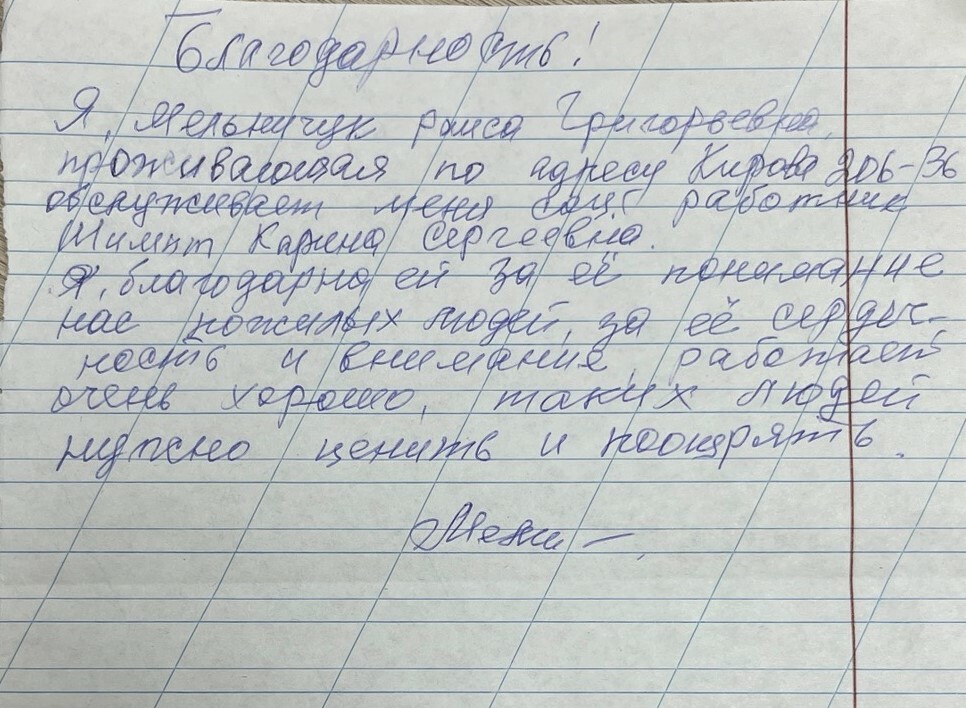 Благодарность!
Я, Мельничук Раиса Григорьевна,
проживающая по адресу Кирова 206-36
обслуживает меня соц. работник
Шимпт Карина Сергеевна.
Я, благодарна ей за её понимание
нас пожилых людей, за её сердеч-
ность и внимание, работает
очень хорошо, таких людей
нужно ценить и поощрять.